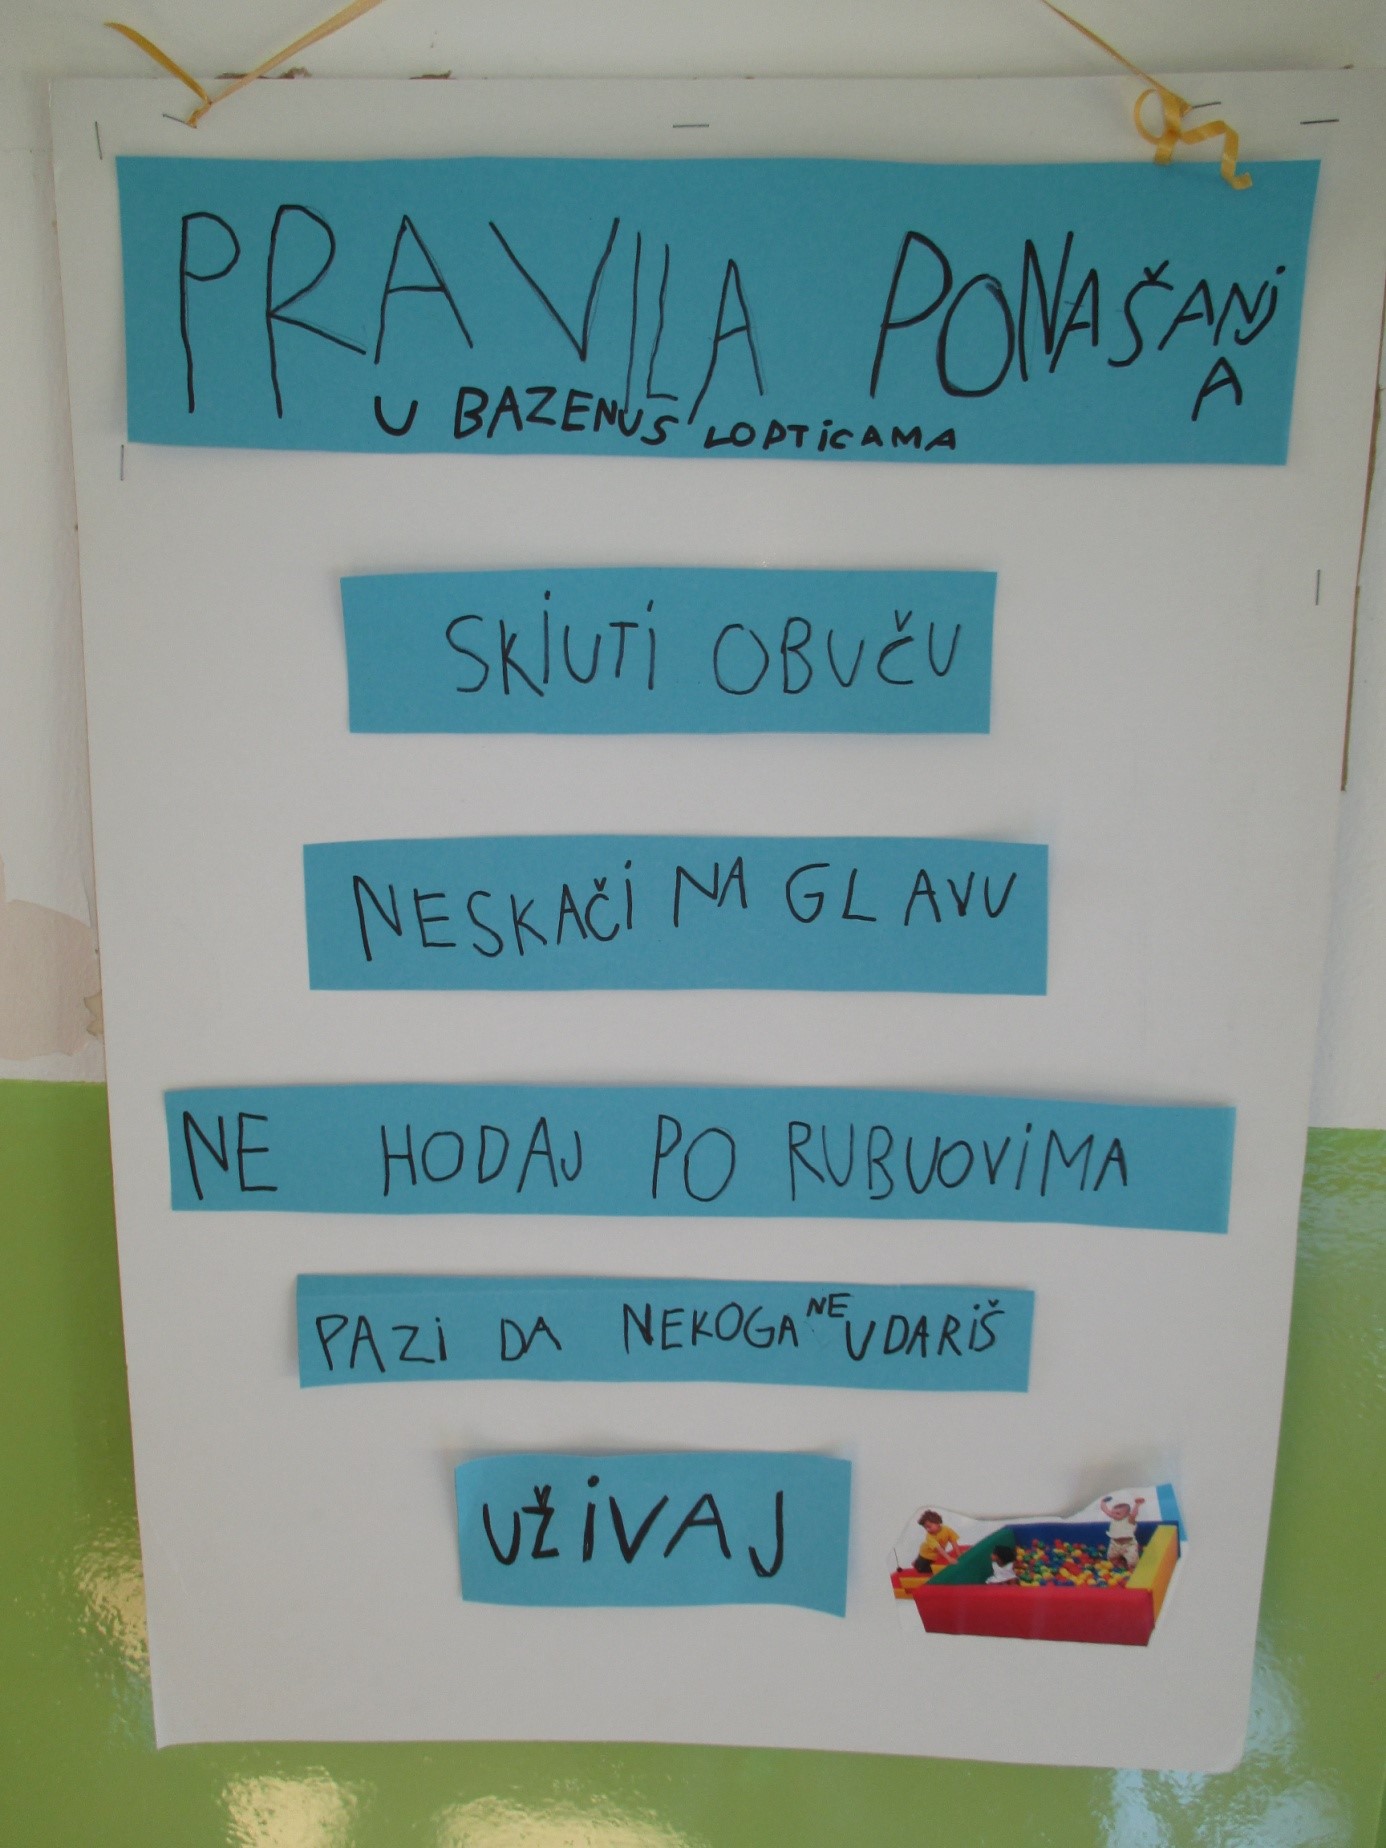 PRAVILA PONAŠANJ
A
U BAZENU S LOPTICAMA
SKIUTI OBUČU
NESKAČI NA GLAVU
NE HODAJ PO RUBUOVIMA
PAZI DA NEKOGA NE UDARIŠ
UŽIVAJ